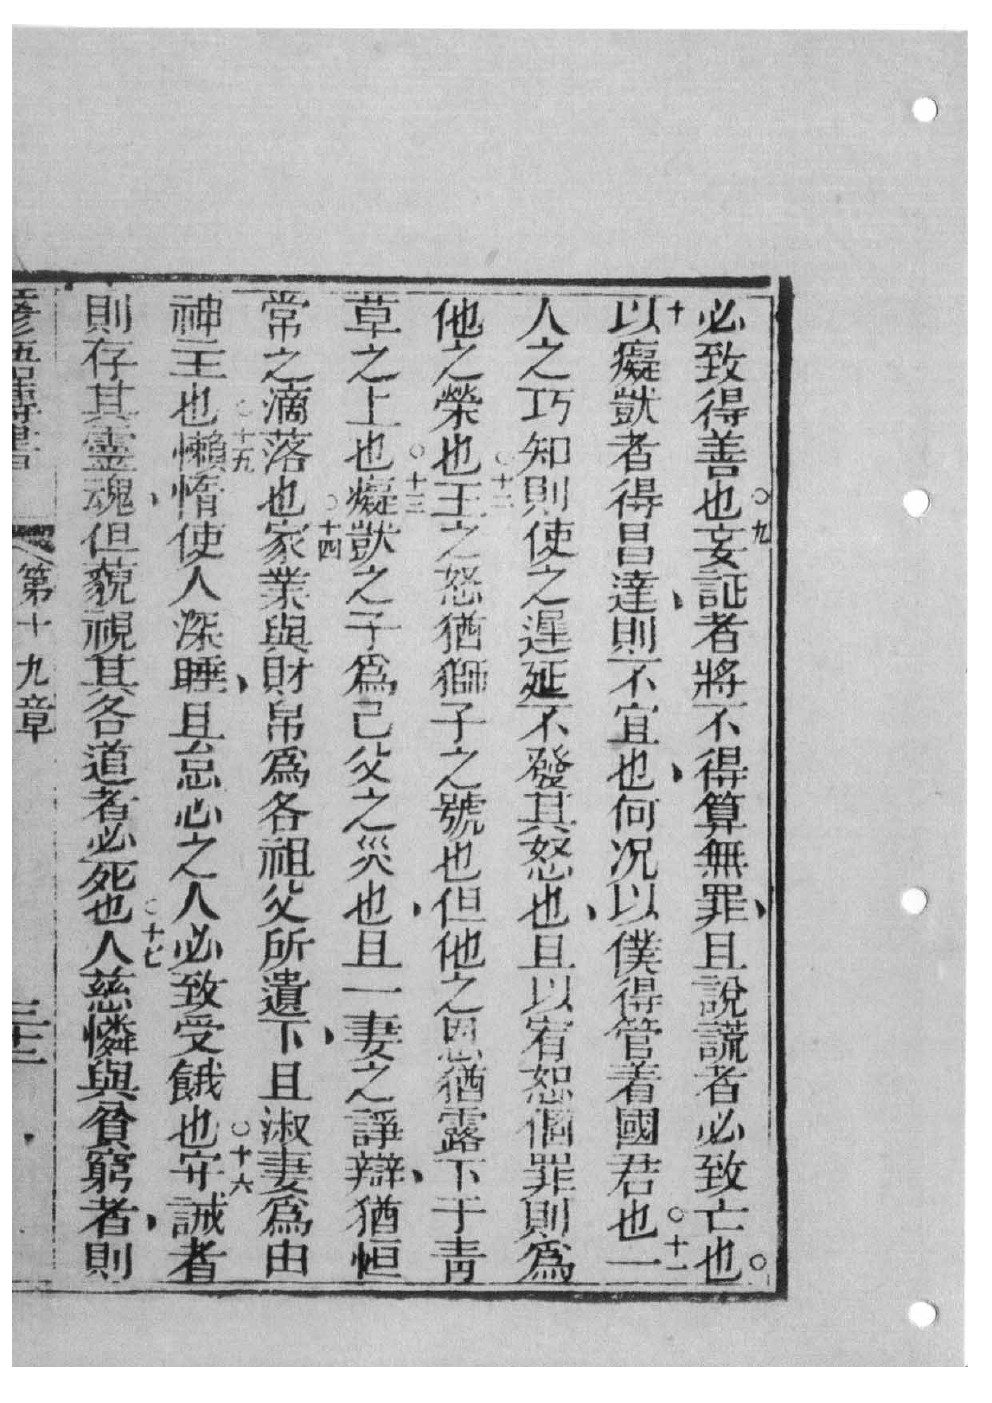 必致得善也○九妄証者將不得算無罪、且說謊者必致亡也○
十以癡獃者得昌達、則不宜也、何況以僕得管着國君也○十一一
人之巧知則使之遲延不發其怒也、且以宥恕個罪則爲
他之榮也○十二王之怒猶獅子之號也但他之恩猶露下于青
草之上也○十三癡獃之子爲己父之災也、且一妻之諍辯、猶恒
常之滴落也○十四家業與財帛爲各祖父所遺下、且淑妻爲由
神主也○十五懶惰使人深睡、且怠心之人必致受餓也○十六守誡者
則存其靈魂、但藐視其各道者必死也○十七人慈憐與貧窮者、則
諺語傳書 第十九章 三十二